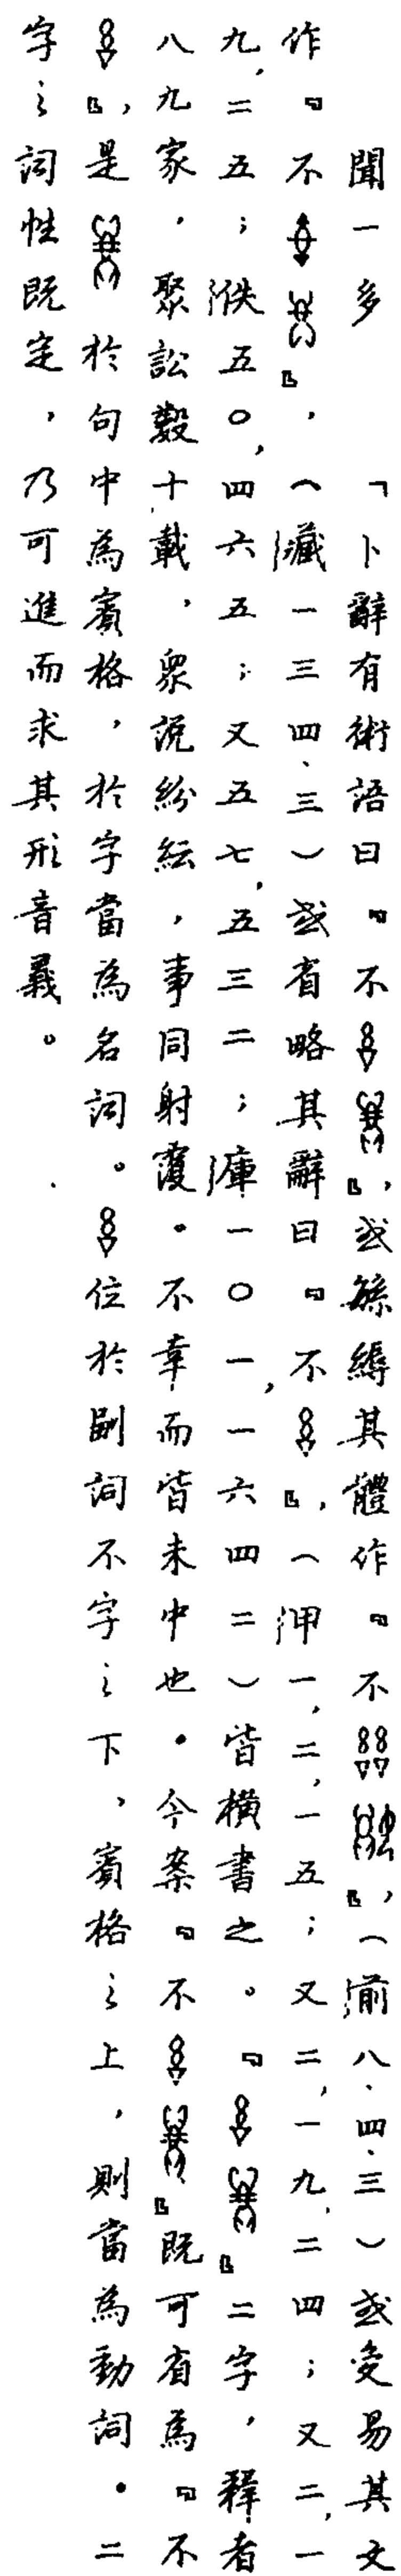 聞一多　「卜辭有術語曰『不』，或緐縟其體作『不』，（前八、四、三）或変易其文
作『不』，（藏一三四、三）或省略其辭曰『不』，（甲一，二，一五；又二，一九，二四；又二，一
九，二五；佚五〇，四六五；又五七，五三二；庫一〇一，一六四二）皆橫書之。『』二字，釋者
八九家，聚訟數十載，衆說紛紜，事同射覆。不幸而皆未中也。今案『不』既可省為『不
』，是於句中為賓格，於字當為名詞。位於副詞不字之下，賓格之上，則當為動詞。二
字之詞性既定，乃可進而求其形音義。